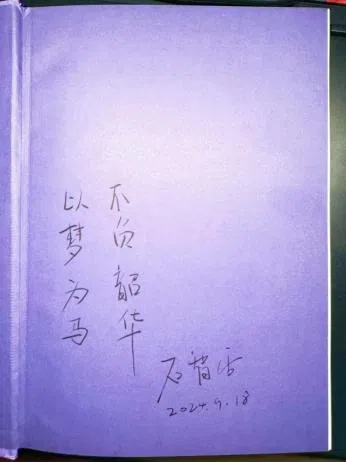 以梦为马
不负韶华
石
2024.9.18